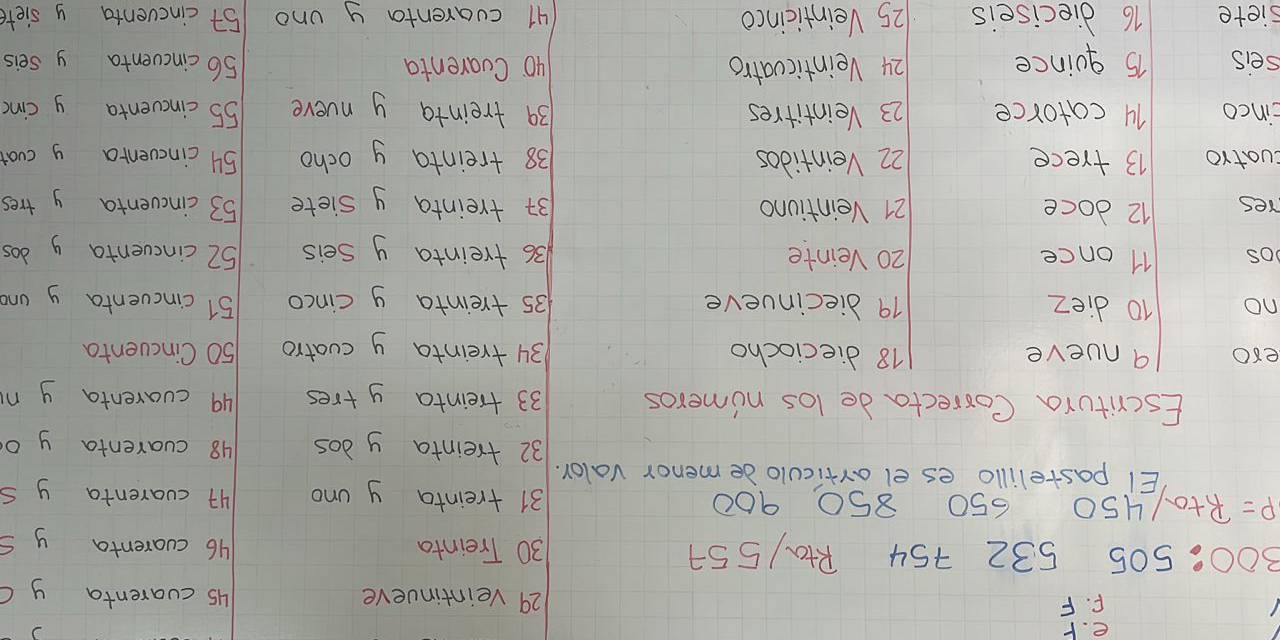 e.F
F.F
300: 505 532 754 Rta/557
P= Rta/450 650 850 900
El pastelillo es el artículo de menor valor.
Escritura Correcta de los números
ero
no
os
res
uatro
inco
seis
siete
9 nueve
10 diez
11 once
12 doce
13 trece
14 catorce
15 quince
16 dieciseis
18 dieciocho
19 diecinueve
20 Veinte
21 Veintiuno
22 Veintidos
23 Veintitres
24 Veinticuatro
25 Veinticinco
29 veintinueve
30 Treinta
31 treinta y uno
32 treinta y dos
33 treinta y tres
34 treinta y cuatro
35 treinta y cinco
36 treinta y seis
37 treinta y siete
38 treinta y ocho
39 treinta y nueve
40 Cuarenta
41 cuarenta y uno
45 cuarenta y c
46 cuarenta y s
47 cuarenta y s
48 cuarenta y o
49 cuarenta y n
50 Cincuenta
51 cincuenta y uno
52 cincuenta y dos
53 cincuenta y tres
54 cincuenta y cuat
55 cincuenta y cinc
56 cincuenta y seis
57 cincuenta y siete